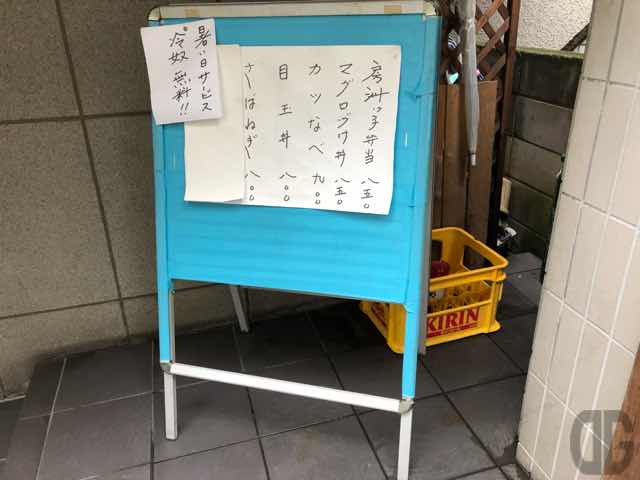 房洲っ子弁当 八五〇
マグロヅケ丼 八五〇
カツなべ 九〇〇
目玉丼 八〇〇
さばねぎ 八〇〇
暑い日サービス
冷奴 無料!!
KIRIN
DG